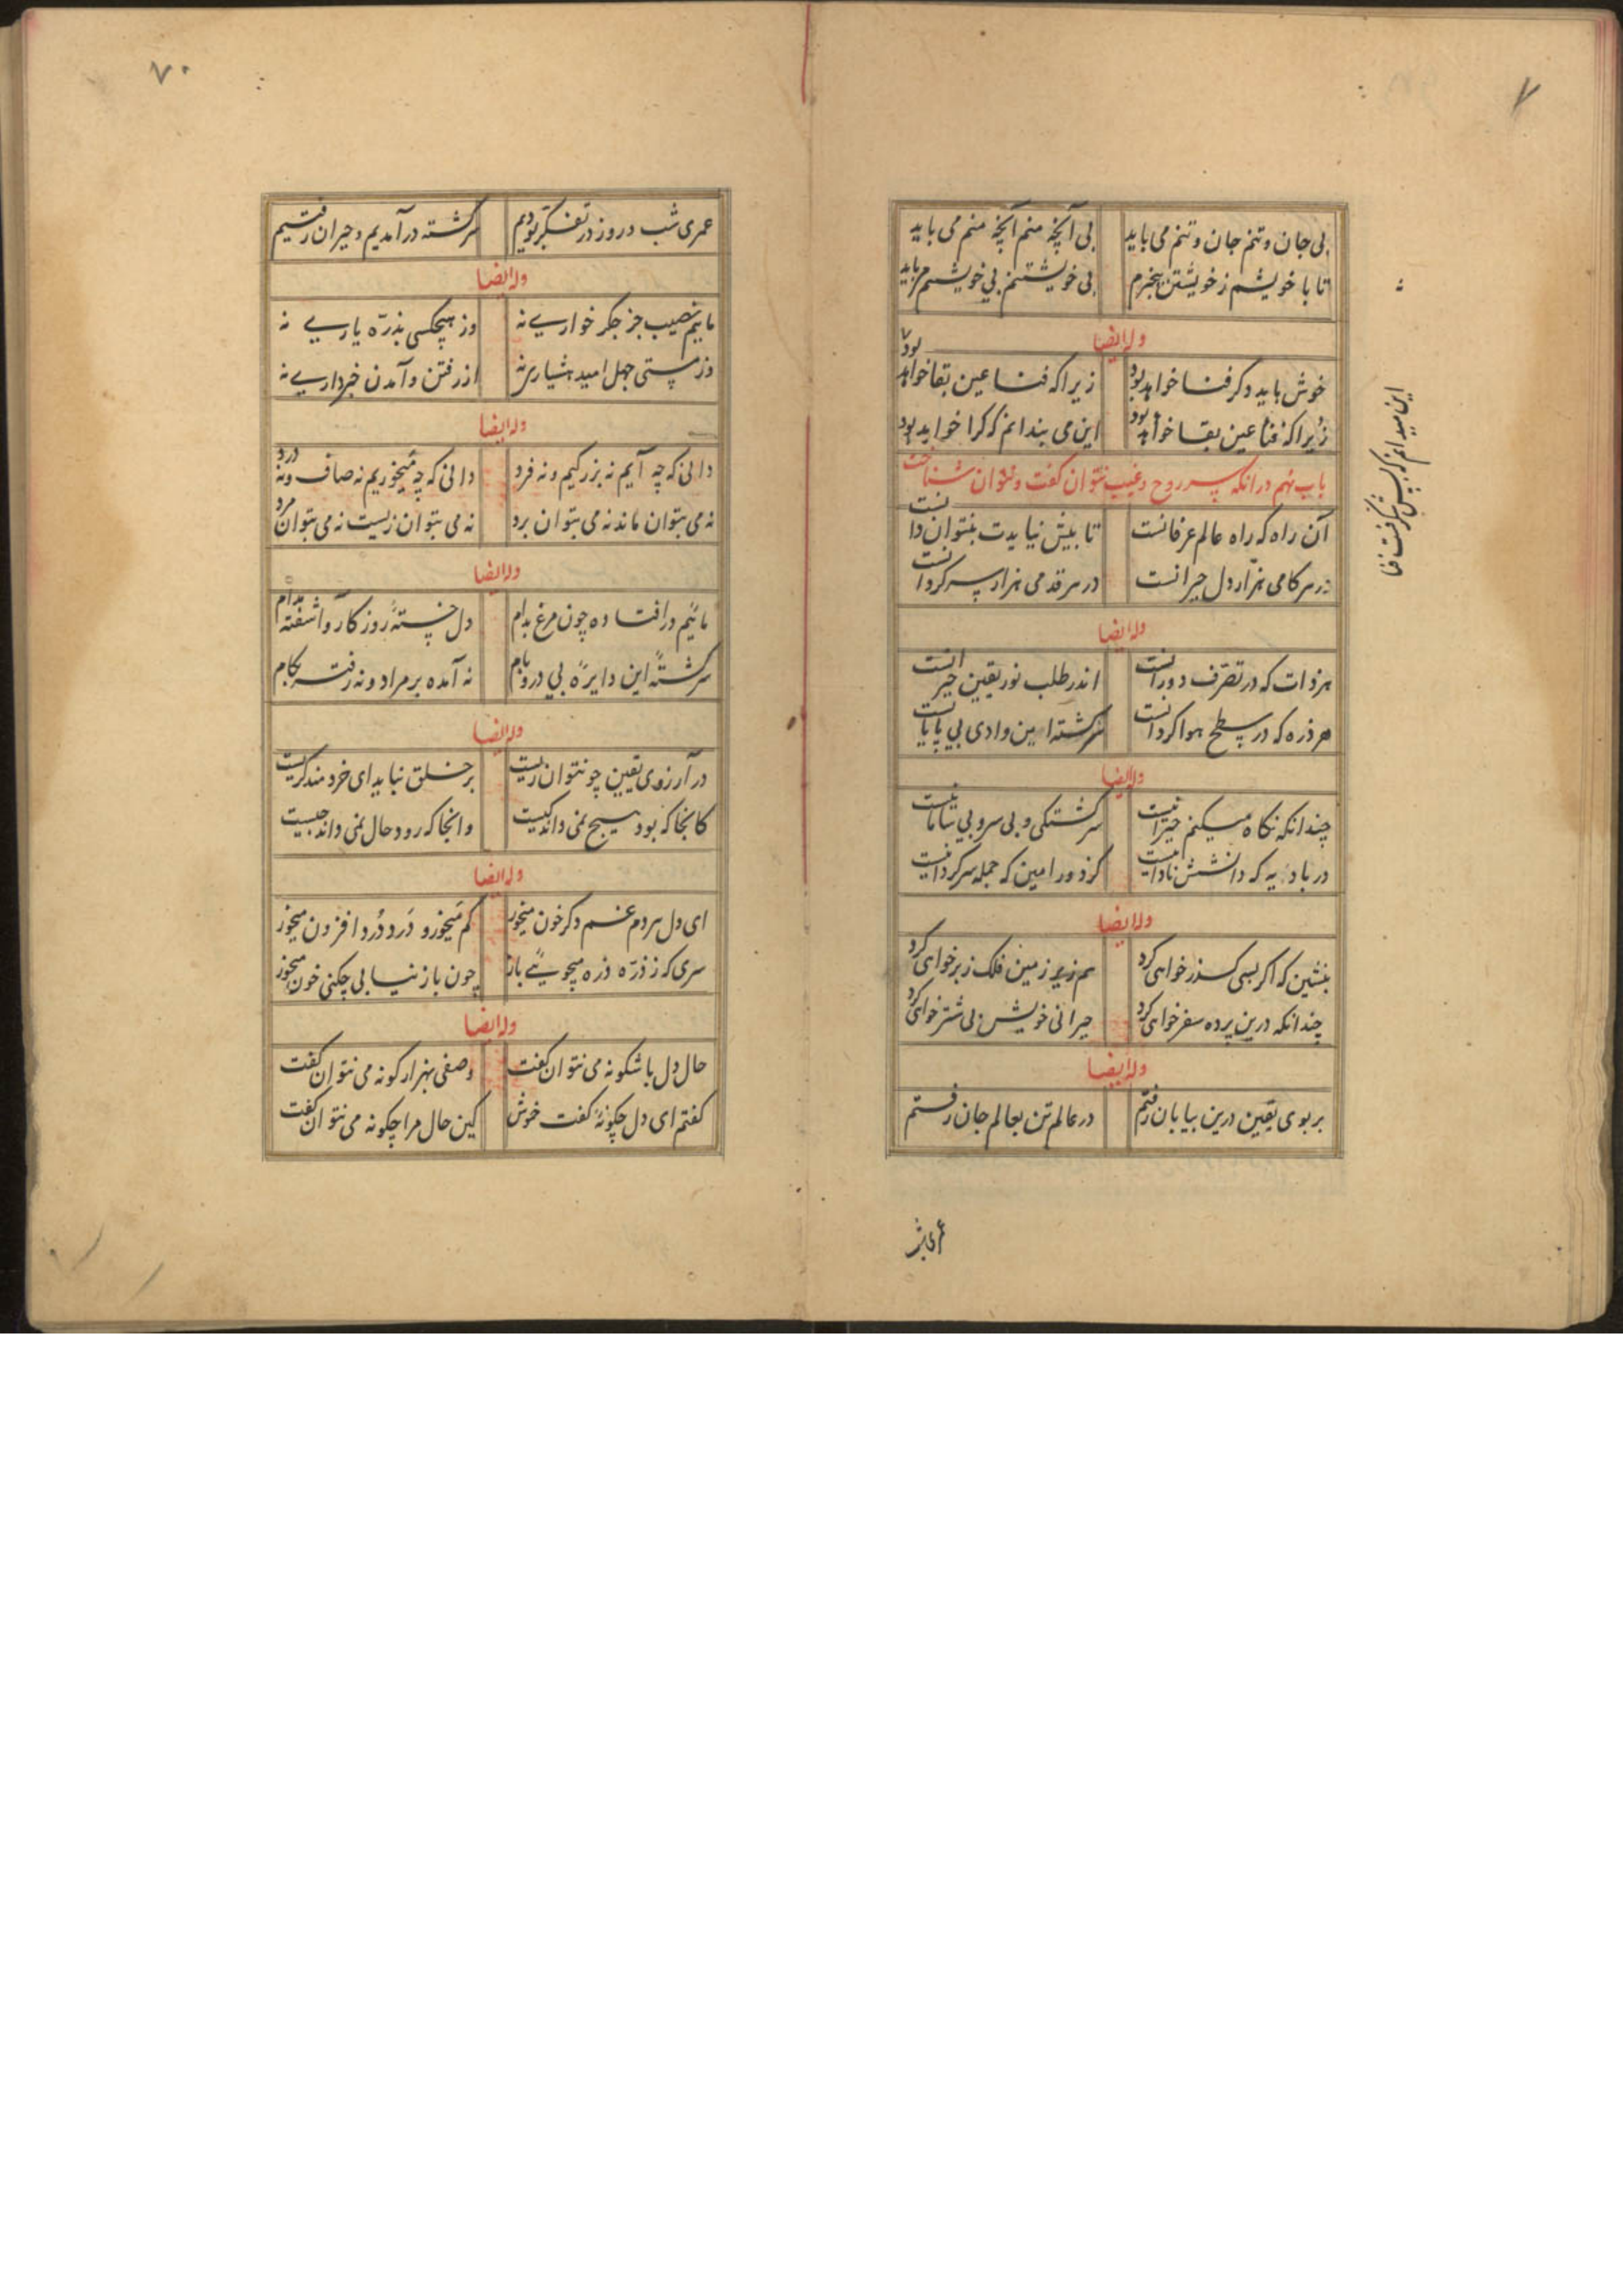 بی جان و تنم جان و تنم می باید بی آنچه منم آنچه منم می باید
تا با خویشم ز خویشتن بیخبرم بی خویشتنم بی خویشتنم می باید
وله ایضا
خوش باید و کر فنا خواهد بود زیرا که فنا عین بقا خواهد بود
زیرا که فنا عین بقا خواهد بود این می بندانم که کرا خواهد بود
این میدانم که بس شکرفست فنا
باب نهم در آنکه سر روح و غیب نتوان کفت و نتوان شناخت
آن راه که راه عالم عرفانست تا پیش نیایدت بنتوان دانست
در هر کامی هزار دل حیرانست در هر قدمی هزار سر کردانست
وله ایضا
هر ذات که در تصرف دورانست اندر طلب نور یقین حیرانست
هر ذره که در سطح هوا کردانست سرکشته این وادی بی پایانست
وله ایضا
چندانکه نکاه میکنم حیرانیست سرکشتکی و بی سر و بی سامانیست
در بادیه که دانشش نادانیست کردون را مین که جمله سرکردانیست
وله ایضا
بنشین که اکر بسی کذر خواهی کرد هم زیر زمین فلک زبر خواهی کرد
چندانکه درین پرده سفر خواهی کرد حیرانی خویش بیشتر خواهی کرد
وله ایضا
بر بوی یقین درین بیابان رفتم در عالم تن بعالم جان رفتم
عمری شب
۷۰
عمری شب و روز در تفکر بودیم سرکشته در آمدیم و حیران رفتیم
وله ایضا
مائیم نصیب جز جکر خواری نه وز هیچکسی بذره یاری نه
وز مستی جهل امید هشیاری نه از رفتن و آمدن خبرداری نه
وله ایضا
دانی که چه آیم نه بزرکیم و نه فرد دانی که چه میخوریم نه صاف و نه درد
نه می بتوان ماند نه می بتوان برد نه می بتوان زیست نه می بتوان مرد
وله ایضا
مائیم در افتاده چون مرغ بدام دل خسته روزکار و آشفته مدام
سرکشته این دایره بی در و بام نه آمده بر مراد و نه رفته بکام
وله ایضا
در آرزوی یقین چو نتوان زیست بر خلق نباید ای خردمند کریست
کانجا که بود هیچ نمی داند کیست وانجا که رود حال نمی داند چیست
وله ایضا
ای دل هر دم غم دکرکون میخور کم میخور و درد درد افزون میخور
سری که ز ذره ذره میجوئی باز چون باز نیابی چکنی خون میخور
وله ایضا
حال دل باشکونه می نتوان کفت وصفی بهزار کونه می نتوان کفت
کفتم ای دل چکونه کفت خوش کین حال مرا چکونه می نتوان کفت